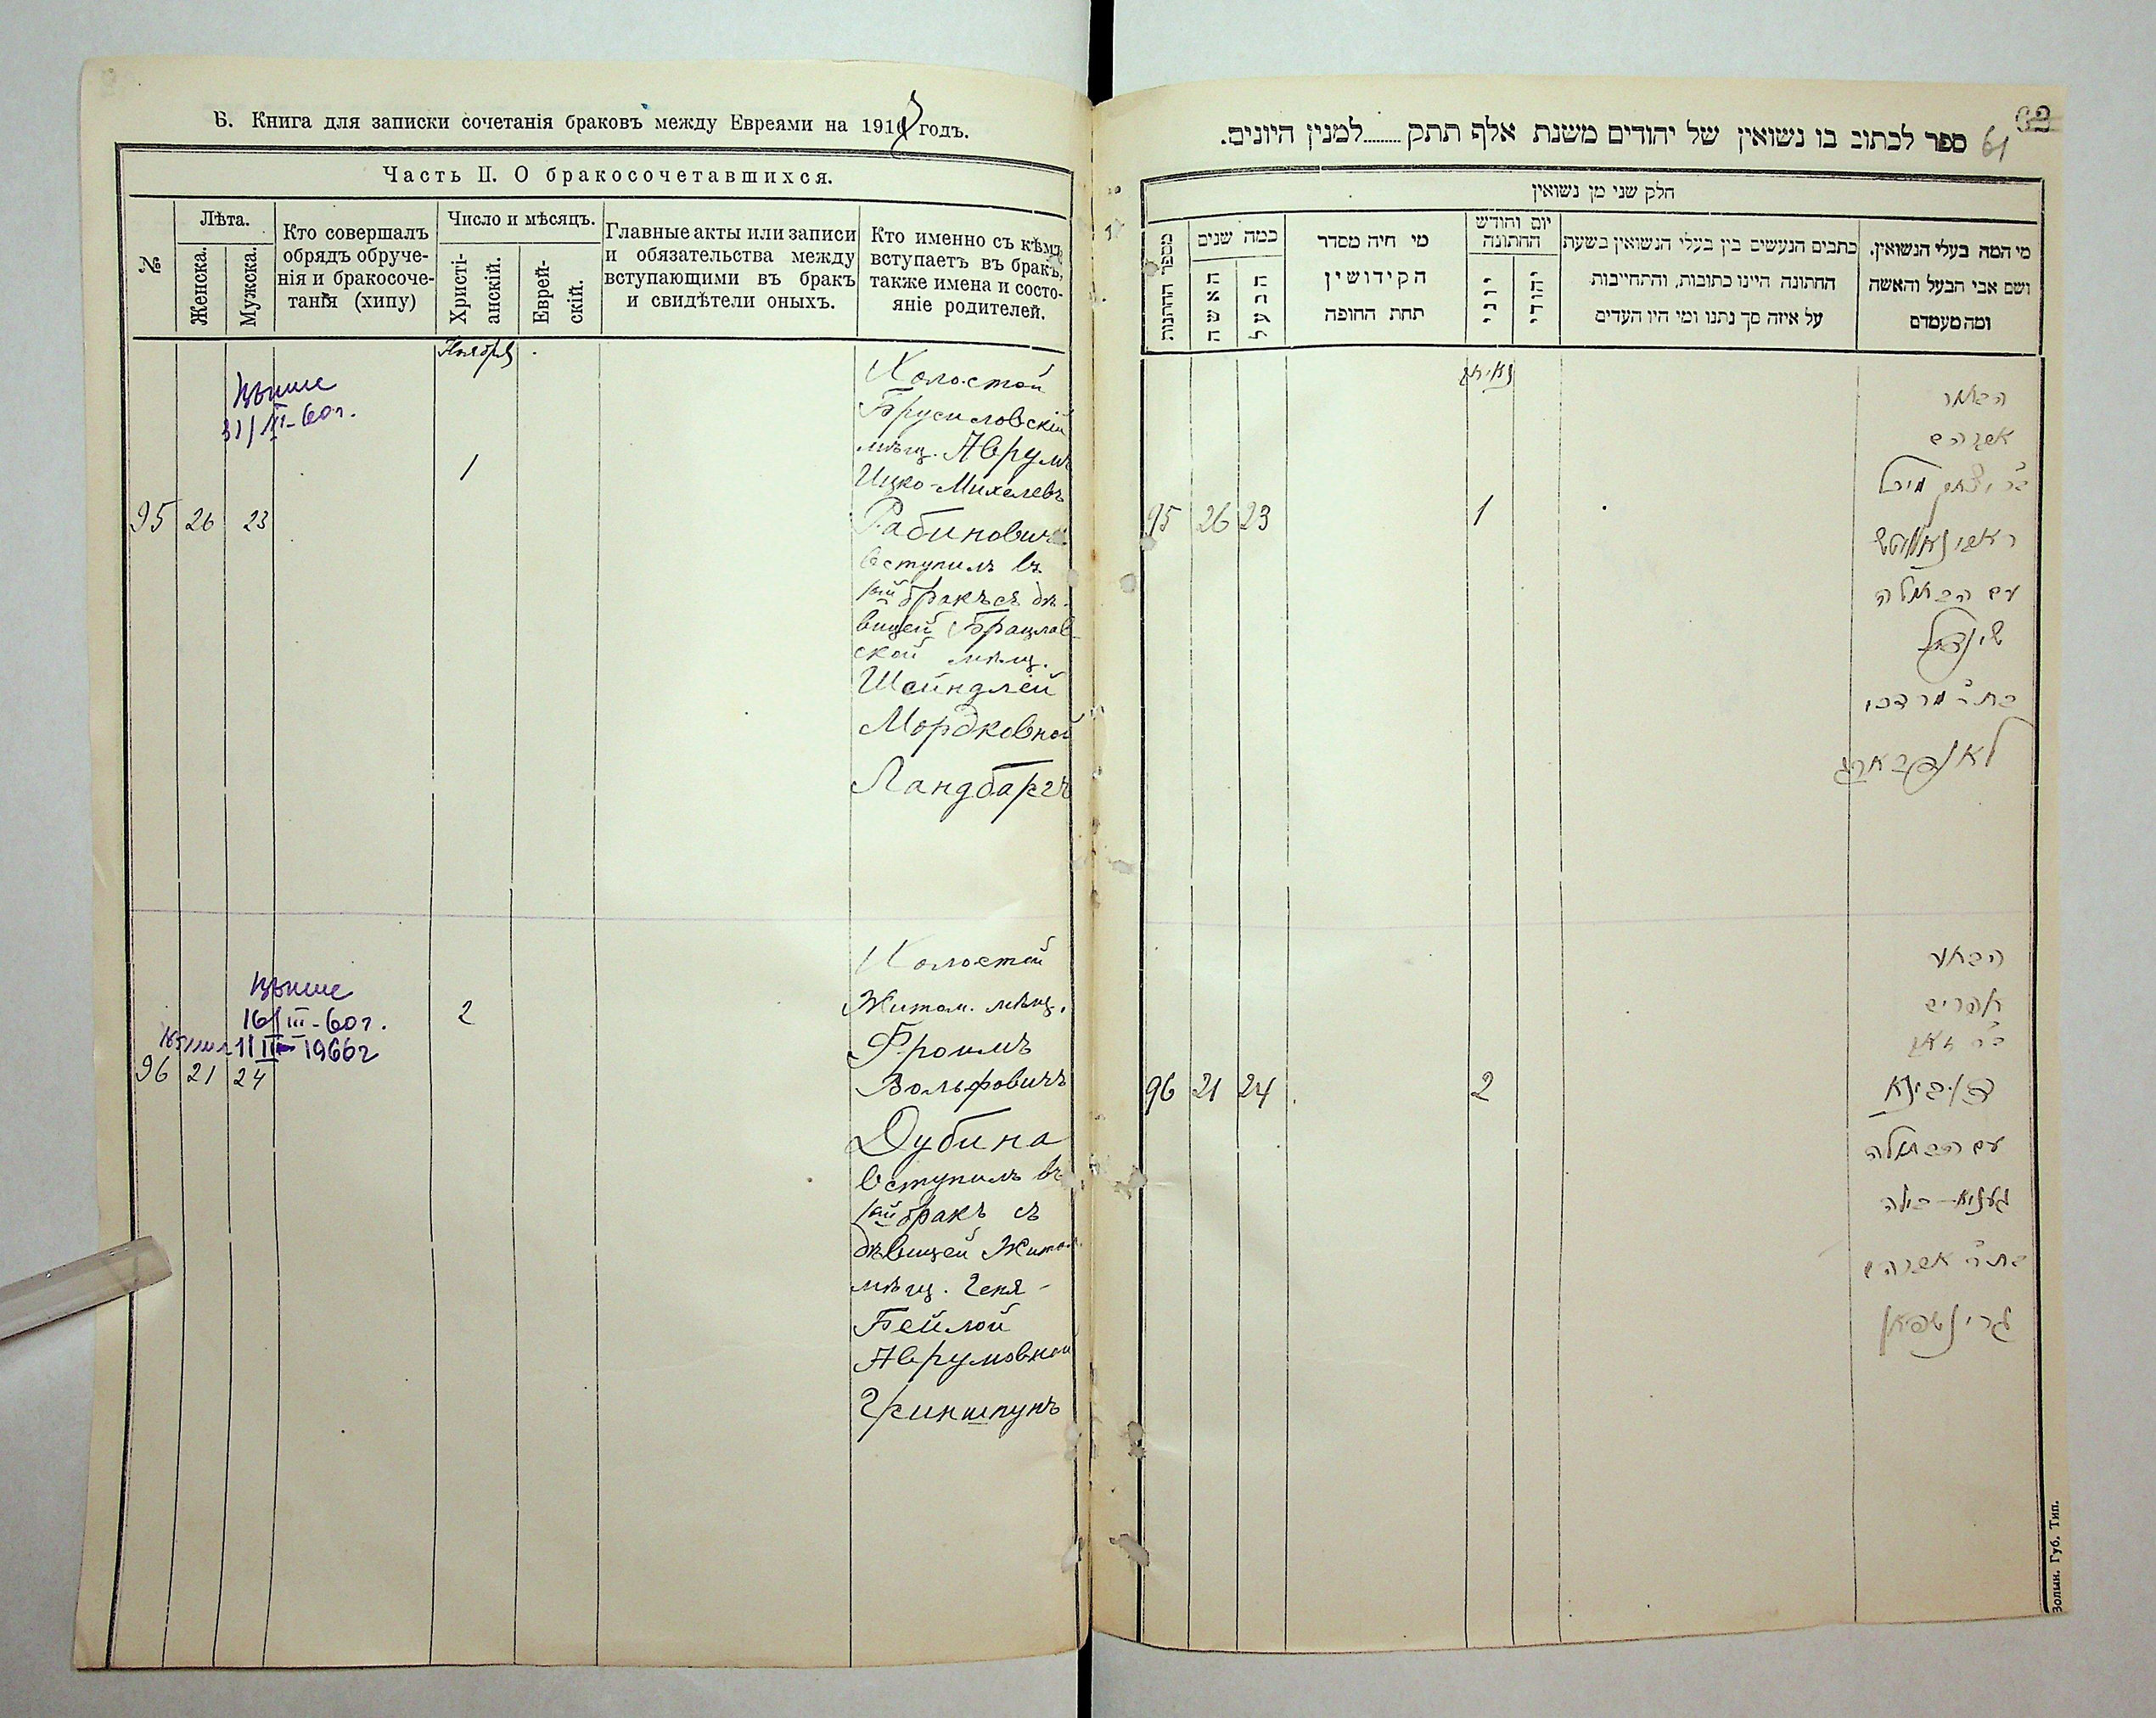 Б. Книга для записки сочетанія браковъ между Евреями на 1917 годъ.
Часть II. О бракосочетавшихся.
№
Лѣта.
Женска.
Мужска.
Кто совершалъ
обрядъ обруче-
нія и бракосоче-
танія (хипу)
Число и мѣсяцъ.
Христі-
анскій.
Еврей-
скій.
Главные акты или записи
и обязательства между
вступающими въ бракъ
и свидѣтели оныхъ.
Кто именно съ кѣмъ
вступаетъ въ бракъ,
также имена и состо-
яніе родителей.
Ноября
31/III-60г.
1
95 26 23
Холостой
Брусиловскій
мѣщ. Аврумъ
Ицко-Михелевъ
Рабиновичъ
вступилъ въ
1ый бракъ съ дѣ-
вицей Брацлав-
ской мѣщ.
Шейндлей
Мордковной
Ландбаргъ
16/III-60г.
1966г
2
96 21 24
Холостой
Житом. мѣщ.
Фроимъ
Вольфовичъ
Дубина
вступилъ въ
1ый бракъ съ
дѣвицей Житом.
мѣщ. Геня-
Бейлой
Аврумовной
Гриншпунъ
62
61
ספר לכתוב בו נשואין של יהודים משנת אלף תתק.........למנין היונים.
חלק שני מן נשואין
מספר החתונות
כמה שנים
האשה
הבעל
מי היה מסדר
הקידושין
תחת החופה
יום וחודש
החתונה
יוני
יהודי
כתבים הנעשים בין בעלי הנשואין בשעת
החתונה היינו כתובות, והתחייבות
על איזה סך נתנו ומי היו העדים
מי המה בעלי הנשואין.
ושם אבי הבעל והאשה
ומה מעמדם
95 26 23
1
הבחור
אברהם
ב״ר יצחק מיכל
ראבינאוויטש
עם הבתולה
שיינדל
בת ר׳ מרדכי
לאנדבארג
96 21 24
2
הבחור
אפרים
דובינא
עם הבתולה
געניא-ביילה
בת ר׳ אברהם
גרינשפאן
Волын. Губ. Тип.